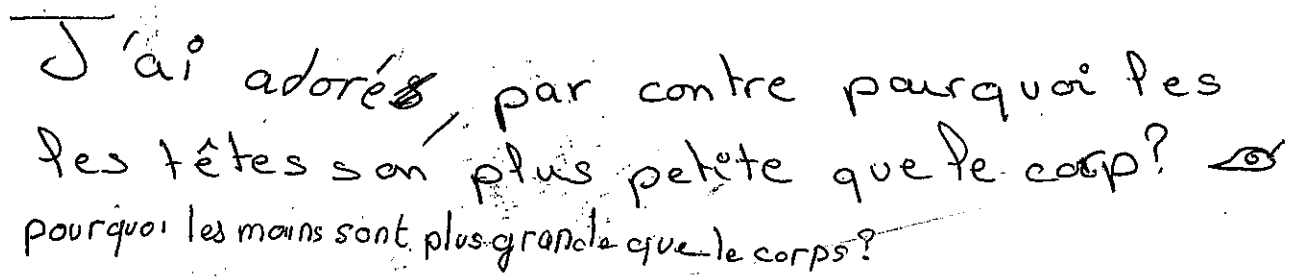 J'ai adoré, par contre pourquoi les
les têtes son plus petite que le corp?
pourquoi les mains sont plus grande que le corps?